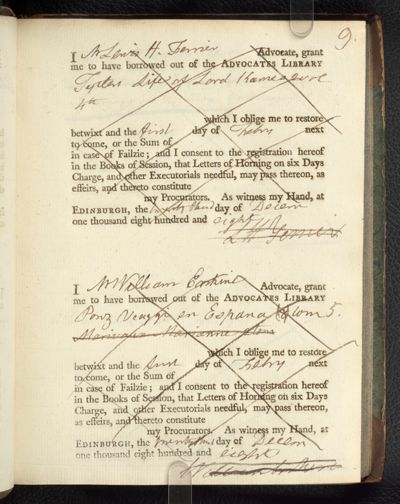 9.
I Mr Lewis H. Ferrier Advocate, grant
me to have borrowed out of the ADVOCATES LIBRARY
Tytlers Life of Lord Kames 2 vol
4to
which I oblige me to restore
betwixt and the first day of Febry next
to come, or the Sum of
in case of Failzie; and I consent to the registration hereof
in the Books of Session, that Letters of Horning on six Days
Charge, and other Executorials needful, may pass thereon, as
effeirs, and thereto constitute
my Procurators. As witness my Hand, at
EDINBURGH, the day of Decem
one thousand eight hundred and eight
L H Ferrier
I Mr William Erskine Advocate, grant
me to have borrowed out of the ADVOCATES LIBRARY
Ponz Viage en Espana tom 5.
Marianne
which I oblige me to restore
betwixt and the first day of Febry next
to come, or the Sum of
in case of Failzie; and I consent to the registration hereof
in the Books of Session, that Letters of Horning on six Days
Charge, and other Executorials needful, may pass thereon,
as effeirs, and thereto constitute
my Procurators. As witness my Hand, at
EDINBURGH, the day of Decem
one thousand eight hundred and eight